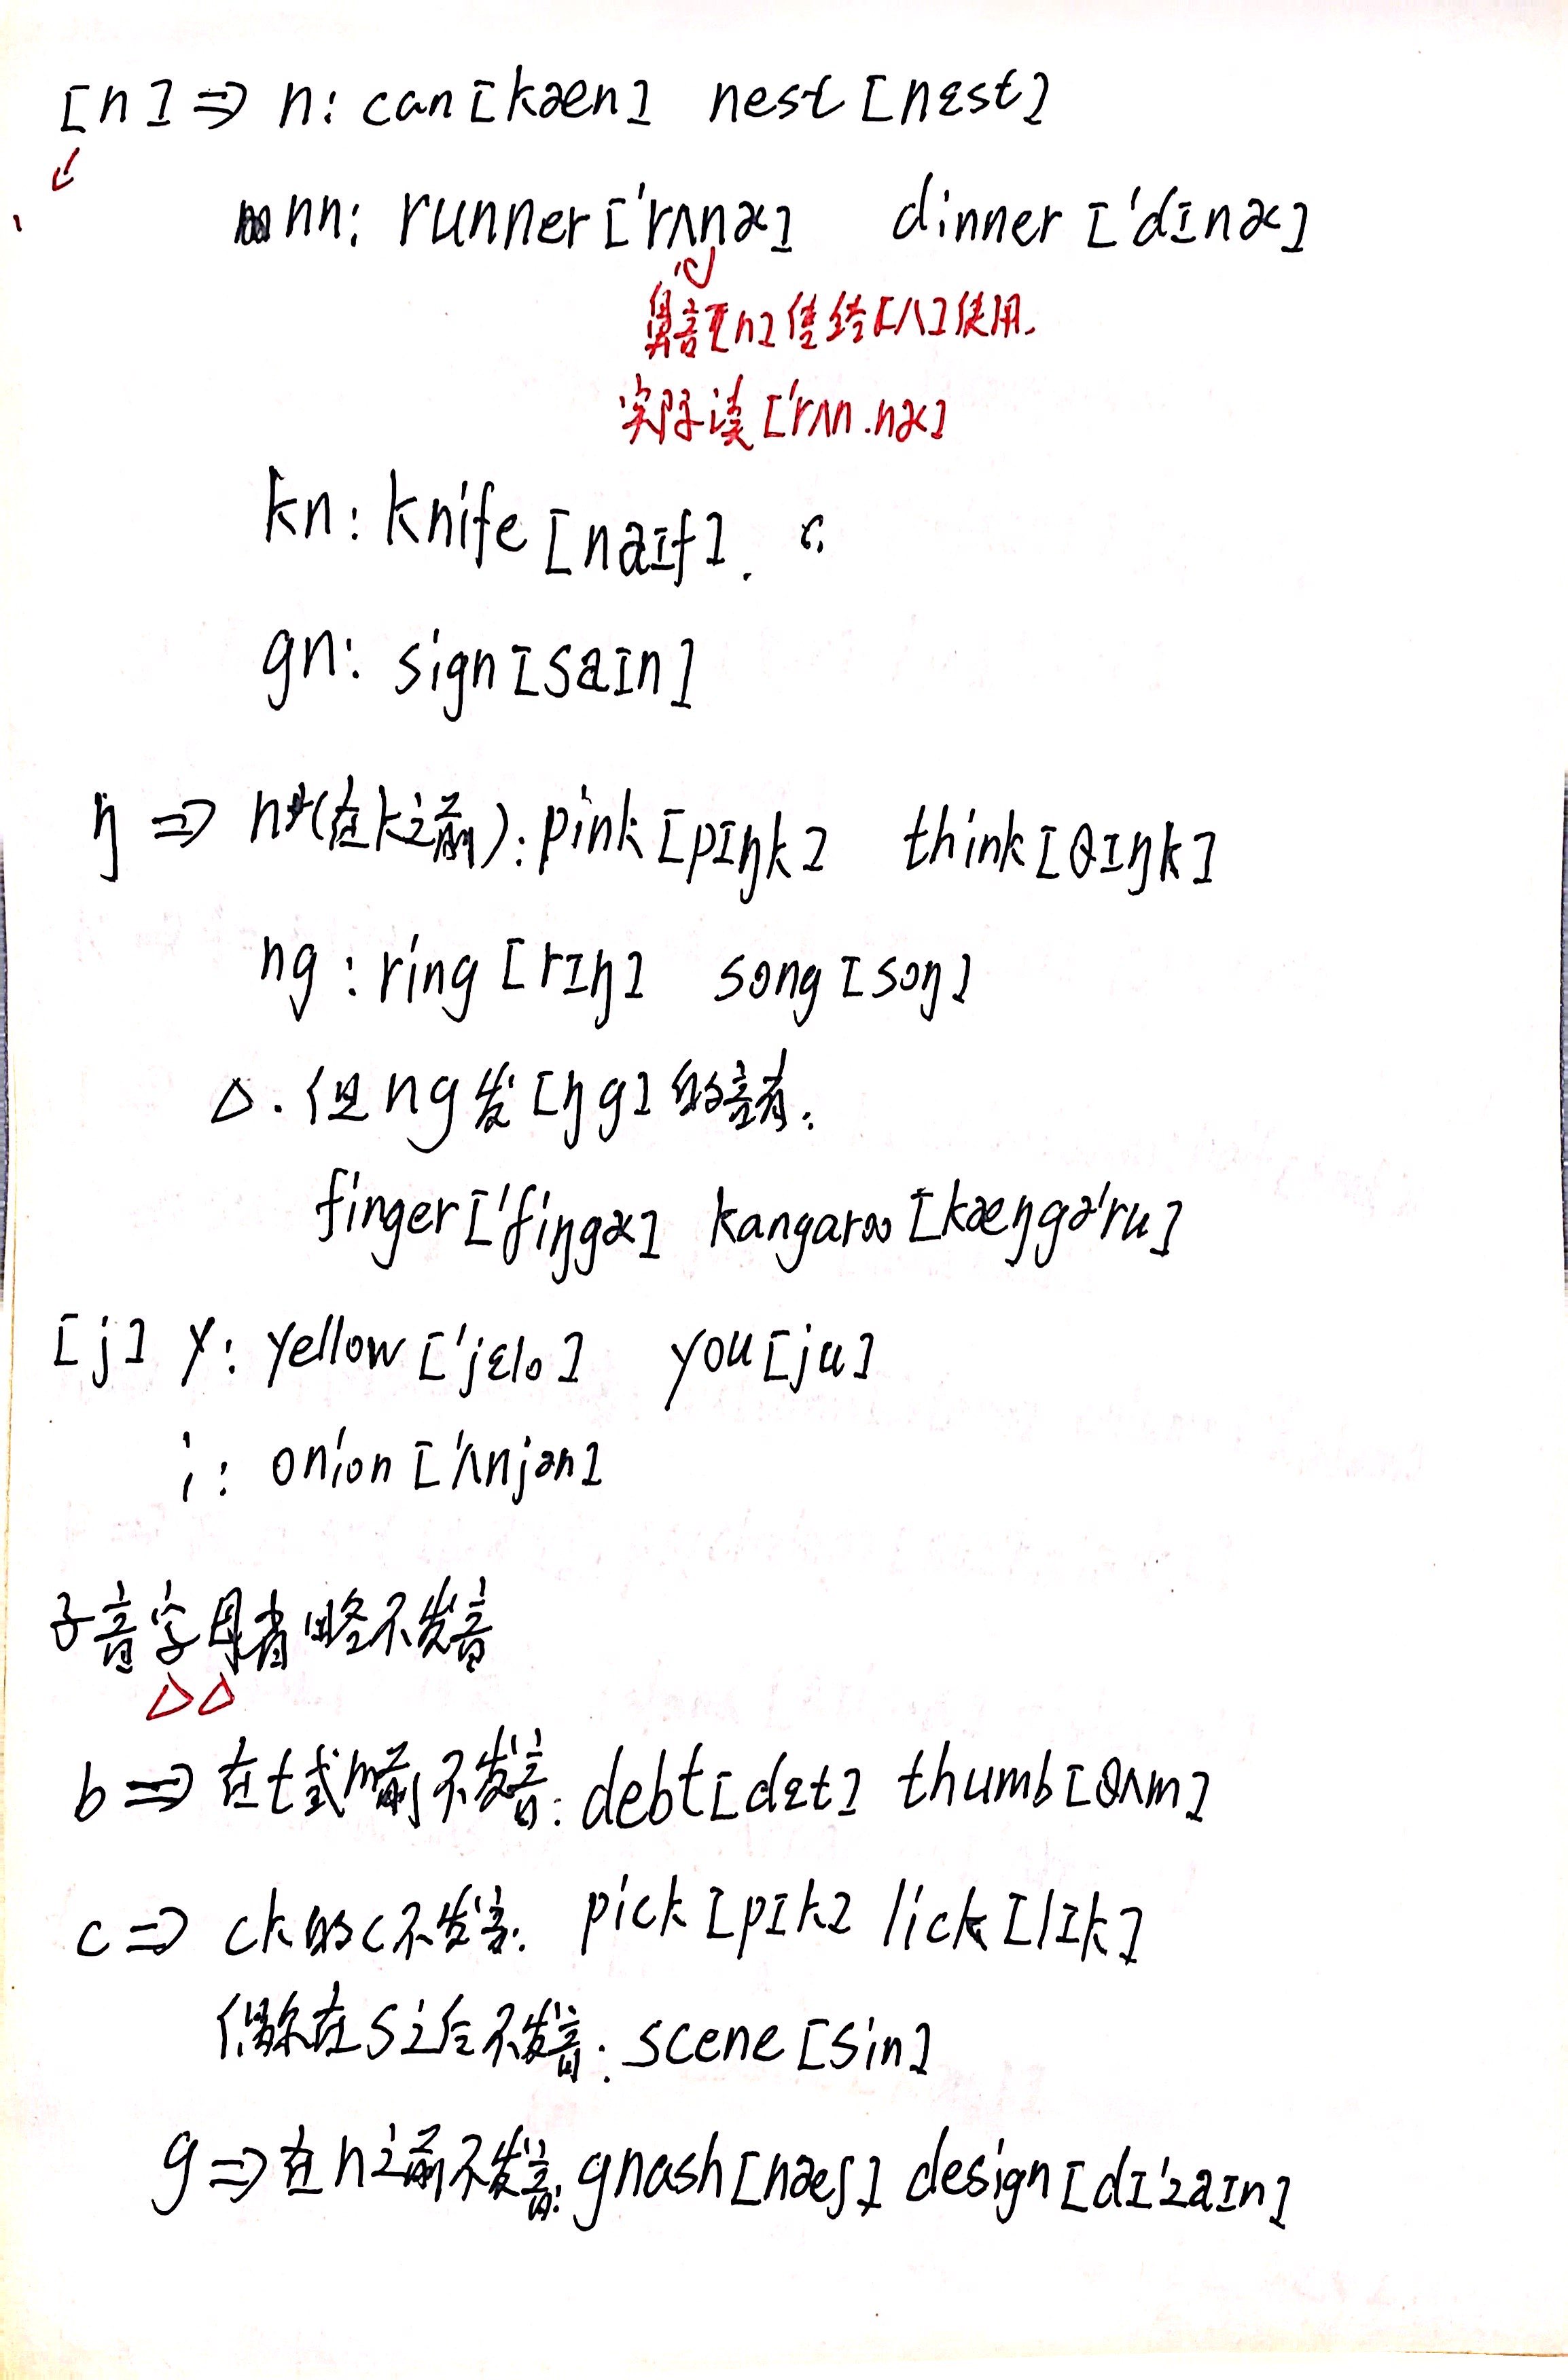 [n] ⇒ n: can [kæn] nest [nɛst]
nn: runner ['rʌnɚ] dinner ['dɪnɚ]
鼻音[n]借给[ʌ]使用.
实际读['rʌn.nɚ]
kn: knife [naɪf].
gn: sign [saɪn]
ŋ ⇒ n(在k之前): pink [pɪŋk] think [θɪŋk]
ng: ring [rɪŋ] song [sɔŋ]
△. 但ng发[ŋg]的音有:
finger ['fiŋgɚ] kangaroo [kæŋgə'ru]
[j] y: yellow ['jɛlo] you [ju]
i: onion ['ʌnjən]
子音字母省略不发音
△△
b ⇒ 在t或m前不发音: debt [dɛt] thumb [θʌm]
c ⇒ ck的c不发音. pick [pɪk] lick [lɪk]
偶尔在s之后不发音: scene [sin]
g ⇒ 在n之前不发音: gnash [næʃ] design [dɪ'zaɪn]